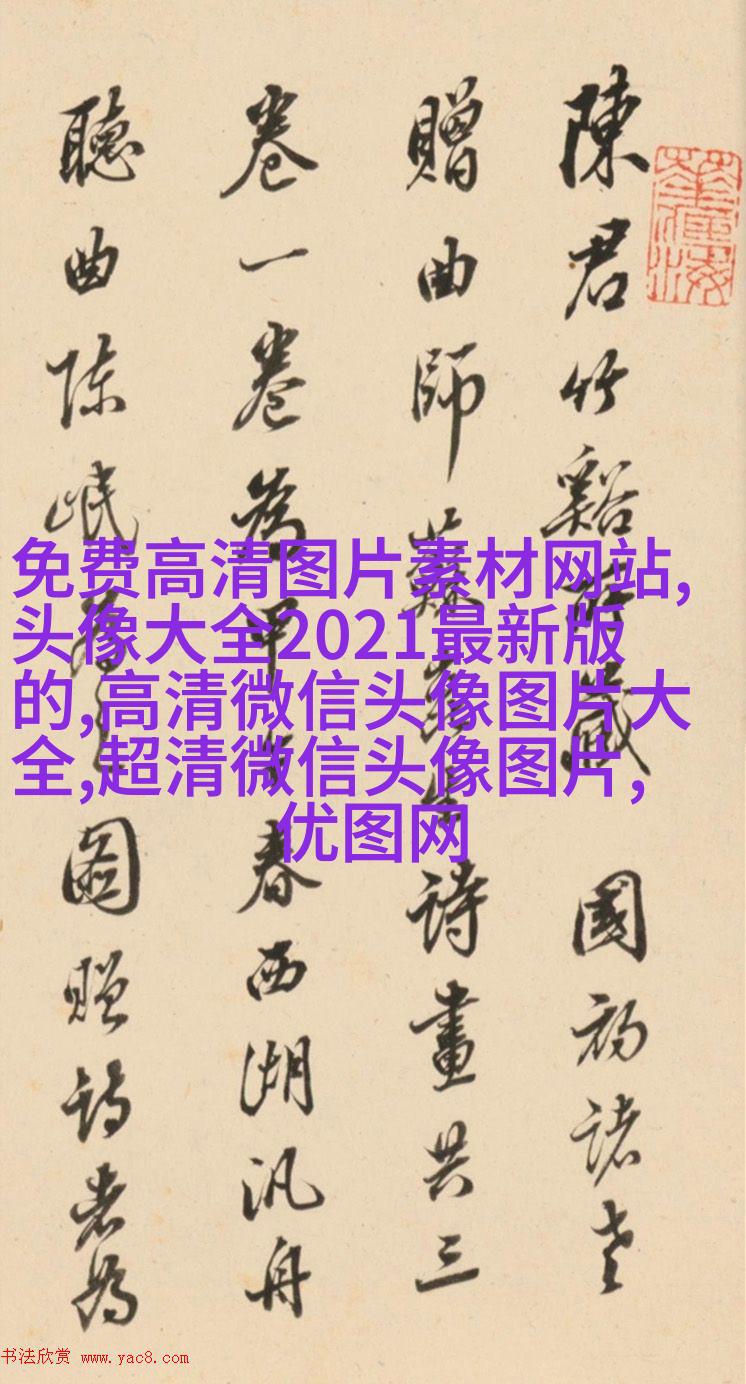 陳君竹谿所藏 國初諸老
贈曲師蘇崑生詩畫共三
卷一卷為甲春西湖汎舟
聽曲陳岷圖贈詩者為
免费高清图片素材网站,
头像大全2021最新版
的,高清微信头像图片大
全,超清微信头像图片,
优图网
书法欣赏 www.yac8.com